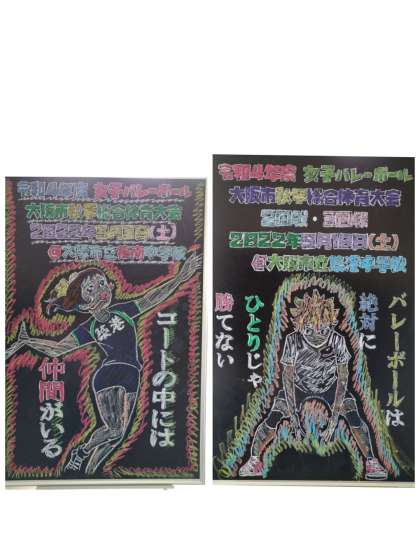 令和4年度 女子バレーボール
大阪市秋季総合体育大会
2022年9月 (土)
@大阪市立 中学校
コートの中には
仲間がいる
令和4年度 女子バレーボール
大阪市秋季総合体育大会
2回戦・3回戦
2022年9月 日(土)
@大阪市立 港中学校
バレーボールは
絶対に
ひとりじゃ
勝てない